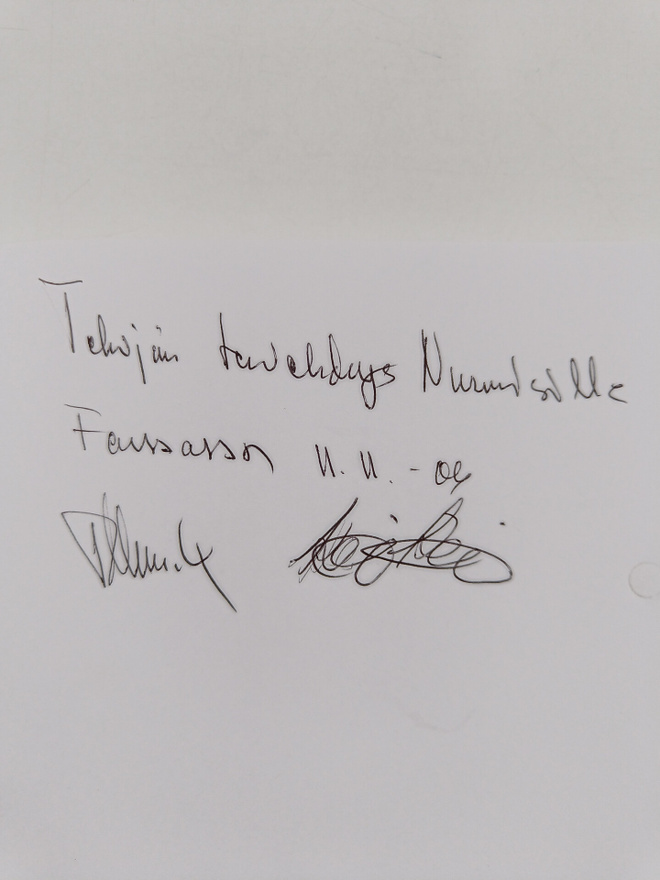 Tekijän tervehdys Nurmisille
Forssassa 11.11.-04